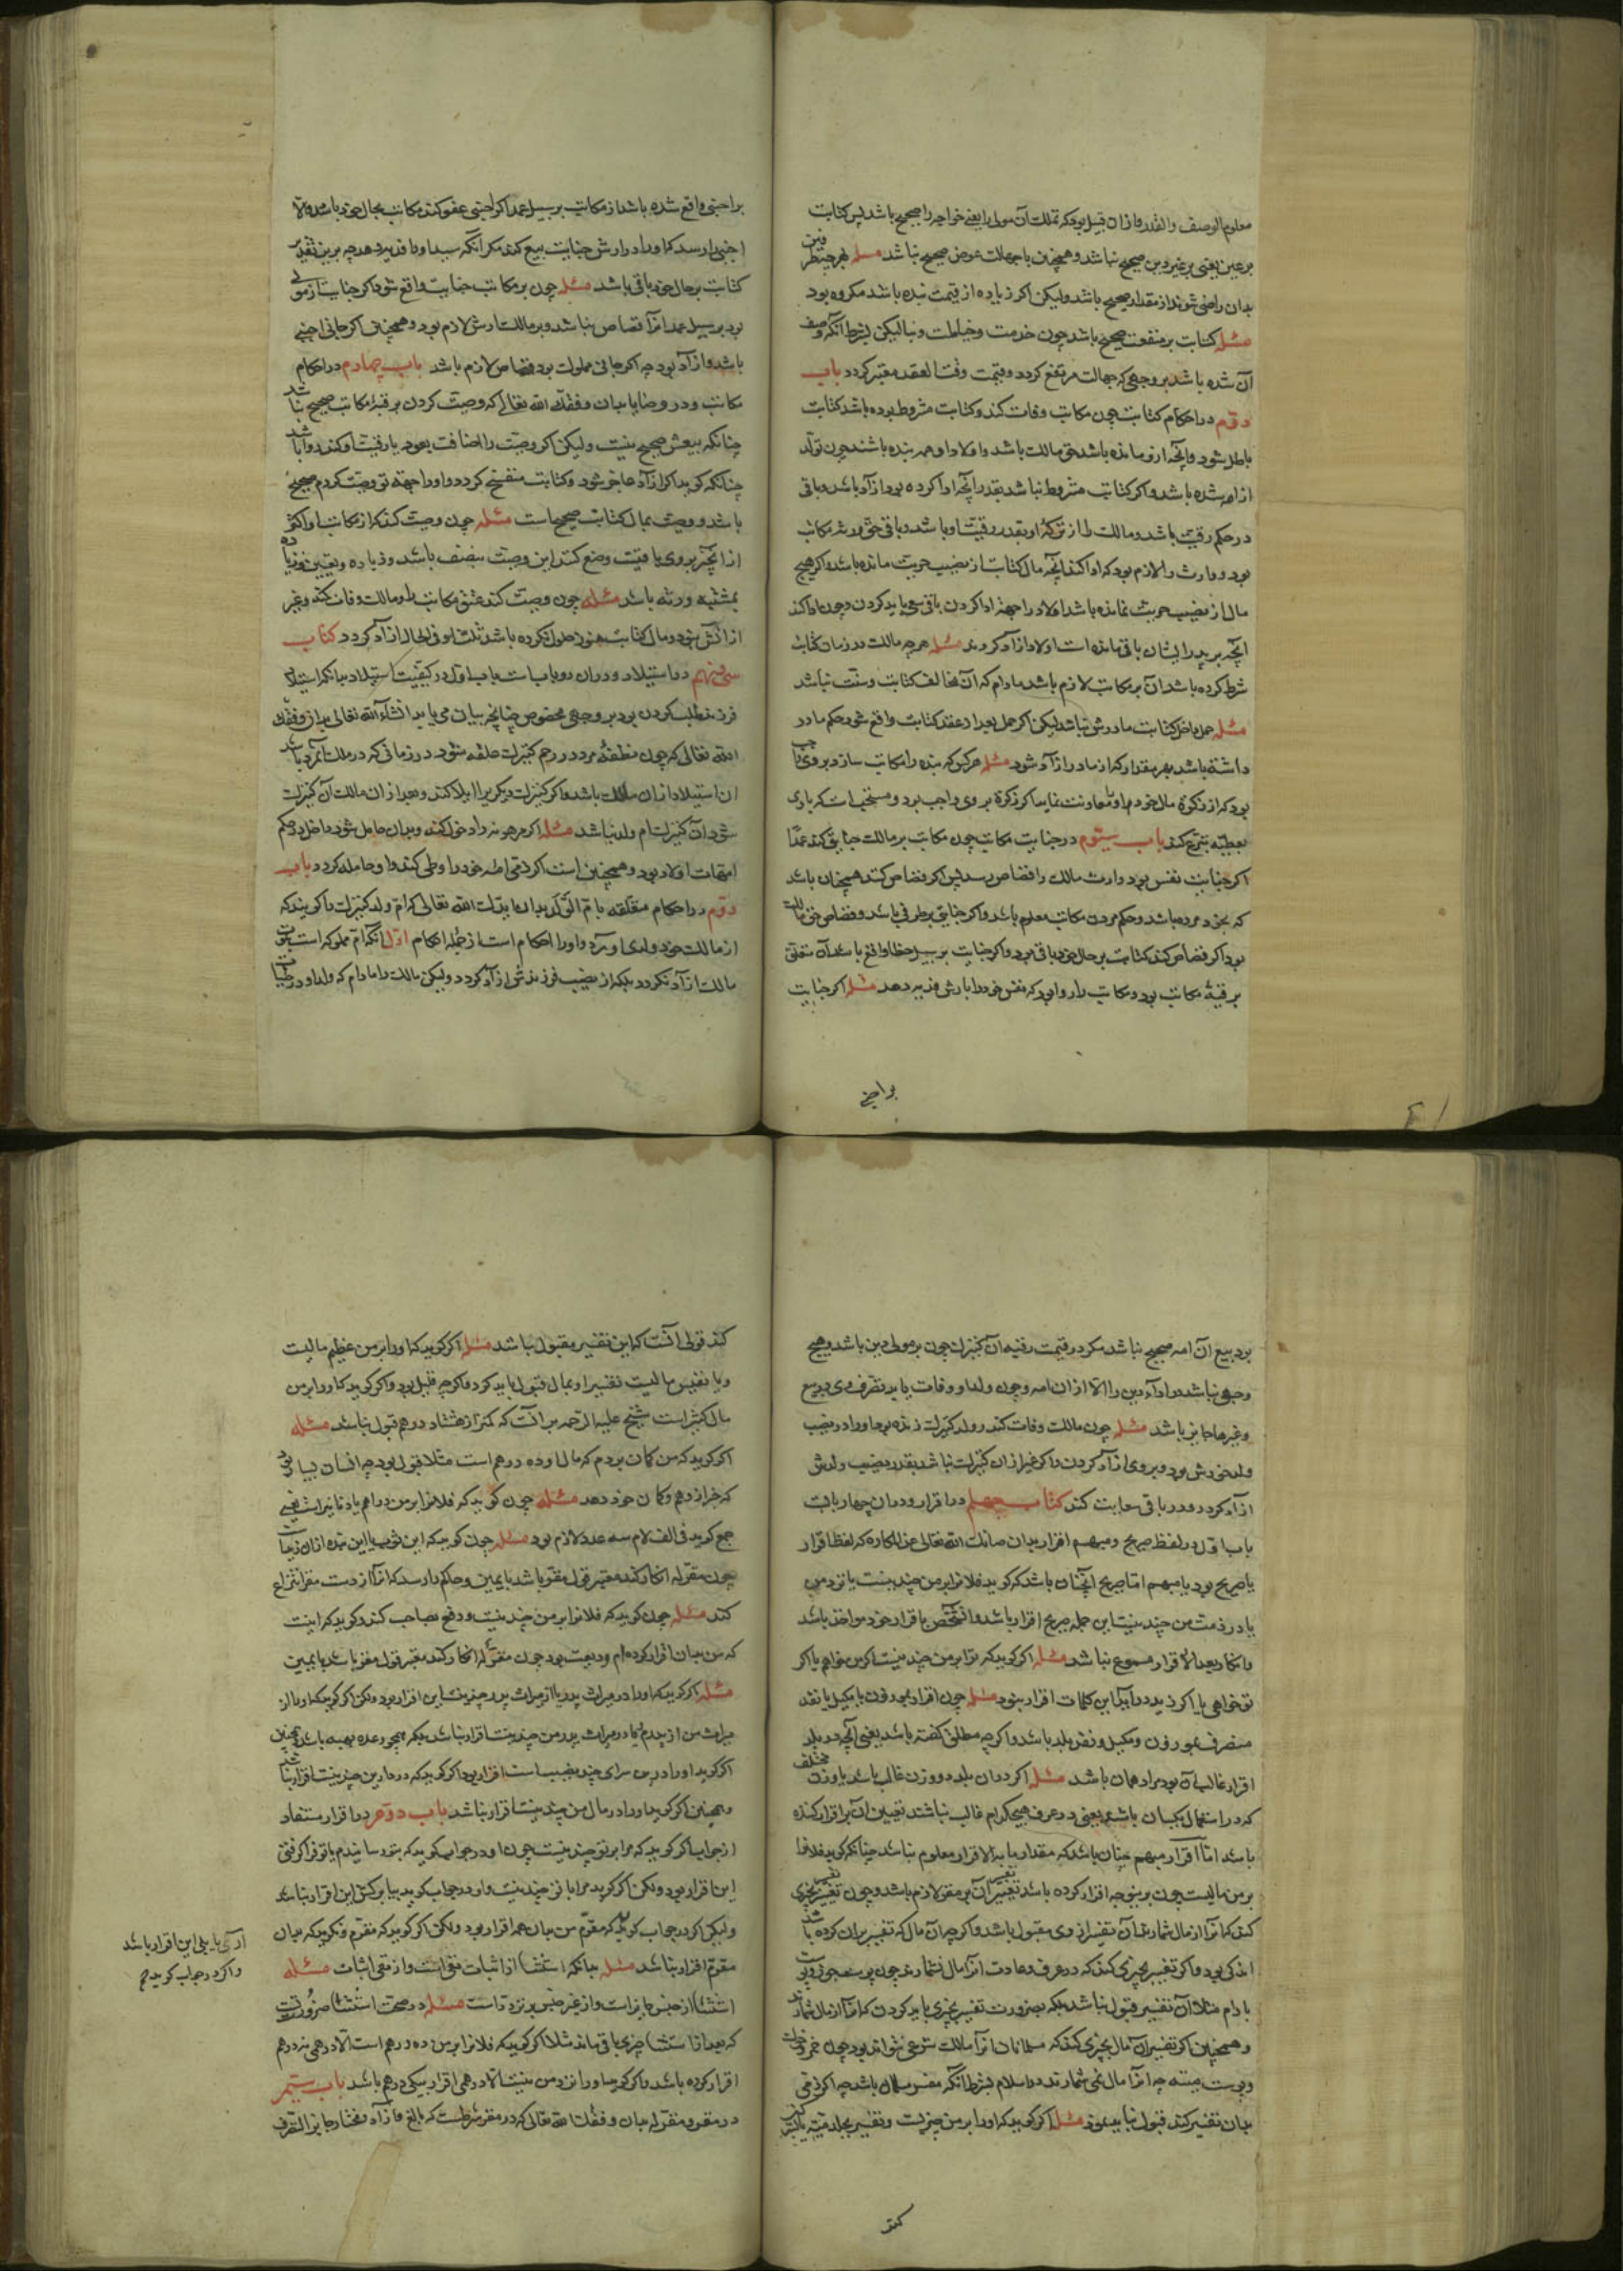 معلوم الوصف والقدر و از ان قبیل بود که تملک آن مولی را یعنی خواجه را صحیح باشد پس کتابت
بر عین یعنی بر غیر دین صحیح نباشد و همچنین با جهالت عوض صحیح نباشد مسله بهر چیز
بدان راضی شوند از مقدار صحیح باشد ولیکن اکر زیاده از قیمت بنده باشد مکروه بود
مسله کتابت بر منفعت صحیح باشد چون خدمت و خیاطت و بنا لیکن بشرط آنکه وصف
آن شده باشد بر وجهی که جهالت مرتفع کردد و قیمت وقت العقد معتبر کردد باب
دوم در احکام کتابت چون مکاتب وفات کند و کتابت مشروط بوده باشد کتابت
باطل شود و آنچه ازو مانده باشد حق مالک باشد و اولاد او همه بنده باشند چون تولد
از او شده باشد و اکر کتابت مشروط نباشد بقدر آنچه ادا کرده بود ازاد باشد و باقی
در حکم رقیت باشد و مالک را از ترکه او بقدر رقیت او باشد و باقی حق ورثه مکاتب
بود و وارث را لازم بود که ادا کند آنچه مال کتابت از نصیب حریت مانده باشد و اکر هیچ
مال از نصیب حریت نمانده باشد اولاد را جهة ادا کردن باقی سعی باید کردن و چون ادا کند
آنچه بر پدر ایشان باقی مانده است اولاد ازاد کردند مسله هرچه مالک در زمان کتابت
شرط کرده باشد آن بر مکاتب لازم باشد مادام که آن مخالف کتابت و سنت نباشد
مسله حمل داخل کتابت مادرش نباشد لیکن اکر حمل بعد از عقد کتابت واقع شود حکم مادر
داشته باشد بهر مقدار که از مادر ازاد شود مسله هر کس که بنده را مکاتب سازد بر وی واجب
بود که از زکوة مال خود او را معاونت نماید اکر زکوة بر وی واجب بود و مستحب است که یاری
بعطیه تبرع کند باب سیوم در جنایت مکاتب چون مکاتب بر مالک جنایتی کند عمدا
اکر جنایت نفس بود وارث مالک را قصاص رسد پس اکر قصاص کند همچنان باشد
که بخود مرده باشد و حکم مردن مکاتب معلوم باشد و اکر جنایتی بر طرفی باشد و قصاص حق مالک
بود اکر قصاص کند کتابت بر حال خود باقی بود و اکر جنایت بر سبیل خطا واقع باشد آن متعلق
برقبهٔ مکاتب بود و مکاتب را روا بود که نفس خود را بارش فدیه دهد مسله اکر جنایت
بر اجنبی
بر اجنبی واقع شده باشد از مکاتب بر سبیل عمد اکر اجنبی عفو کند مکاتب بحال خود باشد والا
اجنبی را رسد که او را در ارش جنایت بیع کند مکر آنکه سید او را فدیه دهد چه برین تقدیر
کتابت بر حال خود باقی باشد مسله چون بر مکاتب جنایت واقع شود اکر جنایت از مولی
بود بر سبیل عمد انرا قصاص نباشد و بر مالک ارش لازم بود و همچنین اکر جانی اجنبی
باشد و ازاد بود چه اکر جانی مملوک بود قصاص لازم باشد باب چهارم در احکام
مکاتب و در وصایا بدان وفقک الله تعالی که وصیت کردن برقبه مکاتب صحیح نباشد
چنانکه بیعش صحیح نیست ولیکن اکر وصیت را اضافت بعود با رقیت او کند روا باشد
چنانکه کوید اکر ازاد عاجز شود و کتابت منفسخ کردد او را جهة تو وصیت کردم صحیح
باشد و وصیت بمال کتابت صحیح است مسله چون وصیت کند که از مکاتب او اکثر
از آنچه بر وی باقیست وضع کنند این وصیت بنصف باشد و زیاده و تعیین زیاده
بمشیه ورثه باشد مسله چون وصیت کند عتق مکاتب را و مالک وفات کند و غیر
از انش نبود و مال کتابت هنوز حلول نکرده باشد ثلث او فی الحال ازاد کردد کتاب
سی و نهم در استیلاد و در ان دو باب است باب اول در کیفیت استیلاد بدانکه استیلاد
فرزند طلب کردن بود بر وجهی مخصوص چنانچه بیان می یابد انشاء الله تعالی بدان وفقک
الله تعالی که چون نطفهٔ مرد در رحم کنیزک علقه شود در زمانی که در ملک آنمرد باشد
ان استیلاد ازان مالک باشد و اکر کنیزک دیکریرا ایلاد کند و بعد از ان مالک آن کنیزک
شود آن کنیزک ام ولد نباشد مسله اکر مرهونه را دخول کند و بدان حامل شود داخل در حکم
امهات اولاد بود و همچنین است اکر ذمی امهٔ خود را وطی کند و او حامله کردد باب
دوم در احکام متعلقه بام الولد بدان ایدک الله تعالی که ام ولد کنیزکی را کویند که
از مالک خود ولدی اورد و او را احکام است از جمله احکام اول آنکه ام مملوکه است بموت
مالک ازاد نکردد بلکه از نصیب فرزندش ازاد کردد ولیکن مالک را مادام که ولد او در حیات
بود بیع ان امه صحیح نباشد مکر در قیمت رقبه آن کنیزک چون بر مولی دین باشد و هیچ
وجهی نباشد در اداء دین را الا از ان امه و چون ولد او وفات یابد تصرف وی در بیع
وغیرها جایز باشد مسله چون مالک وفات کند و ولد کنیزک زنده بود او را در نصیب
ولد خودش بود و بر وی ازاد کردن و اکر غیر ازان کنیزک نباشد بقدر نصیب ولدش
ازاد کردد و در باقی سعایت کند کتاب چهلم در اقرار و در ان چهار بابست
باب اول در لفظ صریح و مبهم اقرار بدان صانک الله تعالی عن المکاره که لفظ اقرار
یا صریح بود یا مبهم اما صریح آنچنان باشد که کوید فلانرا بر من چندینست یا نزد من
یا در ذمت من چندینست این جمله صریح اقرار باشد و آنشخص باقرار خود مواخذ باشد
و انکار بعد الاقرار مسموع نباشد مسله اکر کوید که ترا بر من چندینست اکر من خواهم یا اکر
تو خواهی یا اکر زید در آید این کلمات اقرار نبود مسله چون اقرار بموزون یا بمکیل یا نقد
منصرف بموزون و مکیل و نقد بلد باشد و اکر چه مطلق کفته باشد یعنی آنچه در بلد
اقرار غالب آن بود مراد همان باشد مسله اکر در ان بلد دو وزن غالب باشد یا وزن مختلف
که در استعمال یکسان باشد یعنی در عرف هیچکدام غالب نباشند تعیین آن با اقرار کننده
باشد اما اقرار مبهم چنان باشد که مقدار ما به الاقرار معلوم نباشد چنانکه کوید فلانرا
بر من مالیست چون برینوجه اقرار کرده باشد تفسیر آن بر مقر لازم باشد و چون تفسیر بچیزی
کند که انرا از مال شمارند آن تفسیر از وی مقبول باشد و اکر چه آن مال که تفسیر بران کرده باشد
اندکی بود و اکر تفسیر بچیزی کند که در عرف و عادت انرا مال نشمارند چون پوست جوز و پوست
بادام مثلا آن تفسیر قبول نباشد بلکه بضرورت تفسیر بچیزی باید کردن که انرا از مال شمارند
و همچنین اکر تفسیر آن مال بچیزی کند که مسلمانان انرا مالک شرعی نتواند بود چون خمر و
و پوست میته چه انرا مال نمی شمارند در اسلام بشرط آنکه مفسر مسلمان باشد چه اکر ذمی
بدان تفسیر کند قبول باید نمود مسله اکر کوید که او را بر من چیزیست و تفسیر بجلد میته یا
کند
کند قولی آنست که این تفسیر مقبول باشد مسله اکر کوید که او را بر من عظیم مالیست
و یا نفیس مالیست تفسیر او بمال قبول باید کرد و اکر چه قلیل بود و اکر کوید که او را بر من
مال کثیر است شیخ علیه الرحمه بر آنست که کمتر از هشتاد درهم قبول نباشد مسله
اکر کوید که من کمان بردم که مال او ده درهم است مثلا قبول بود چه انسان بسیار بود
که خبر از وهم و کمان خود دهد مسله چون کوید که فلانرا بر من دراهم یا دنانیر است یعنی
جمع کوید فی الف لام سه عدد لازم بود مسله چون کوید که این ثوب یا این بنده ازان زید است
چون مقر له انکار کند معتبر قول مقر باشد با یمین و حاکم را رسد که آنرا از دست مقر انتزاع
کند مسله چون کوید که فلانرا بر من چندینست و دفع بصاحب کند و کوید که اینست
که من بدان اقرار کرده ام و دیعت بود چون مقر له انکار کند معتبر قول مقر باشد با یمین
مسله اکر کوید که او را در میراث پدر یا از میراث پدر چندینست این اقرار بود ولکن اکر کوید که او را از
میراث من از پدرم یا در میراث پدر من چندینست اقرار نباشد بلکه همچو وعده بهبه باشد همچنین
اکر کوید او را درین سرای چند نصیب است اقرار بود اکر کوید که در دار من چندینست اقرار نباشد
وهمچنین اکر کوید او را در مال من چندینست اقرار نباشد باب دوم در اقرار مستفاد
از جواب اکر کوید که مرا بر تو چندینست چون او در جواب کوید که بتو رسانیدم یا تو فرا کرفتی
این اقرار بود ولکن اکر کوید مرا با تو چندینست و او در جواب کوید بیا بر کش این اقرار نباشد
ولیکن اکر در جواب کوید که مقرم من بدان هم اقرار بود ولکن اکر کوید که مقرم و نکوید که بدان
مقرم اقرار نباشد مسله بدانکه استثنا از اثبات نفی است و از نفی اثبات مسله
استثنا از جنس جایز است و از غیر جنس بر تردد است مسله در صحت استثنا ضرورتست
که بعد از استثنا چیزی باقی ماند مثلا اکر کوید که فلانرا بر من ده درهم است الا درهمی نه درهم
اقرار کرده باشد و اکر کوید او را نزد من نیست الا درهمی اقرار بیکی درهم باشد باب سیم
در مقر و مقر له بدان وفقک الله تعالی که در مقر شرطست که بالغ و ازاد و مختار و جایز التصرف
آری یا بلی این اقرار باشد
و اکر در جواب کوید نعم